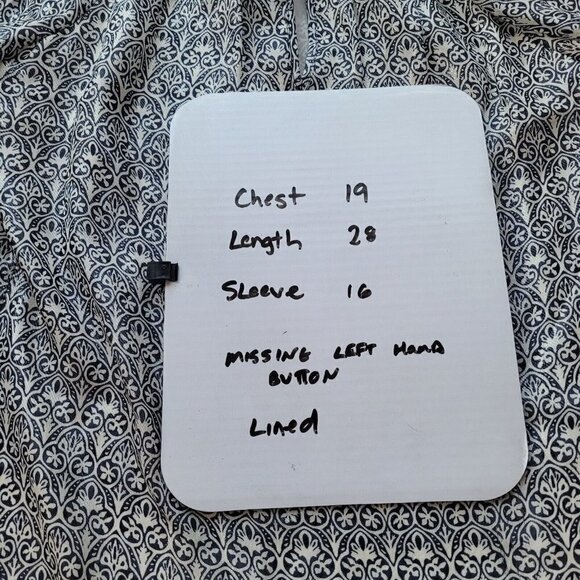 Chest 19
Length 28
Sleeve 16
MISSING LEFT HAND
BUTTON
Lined